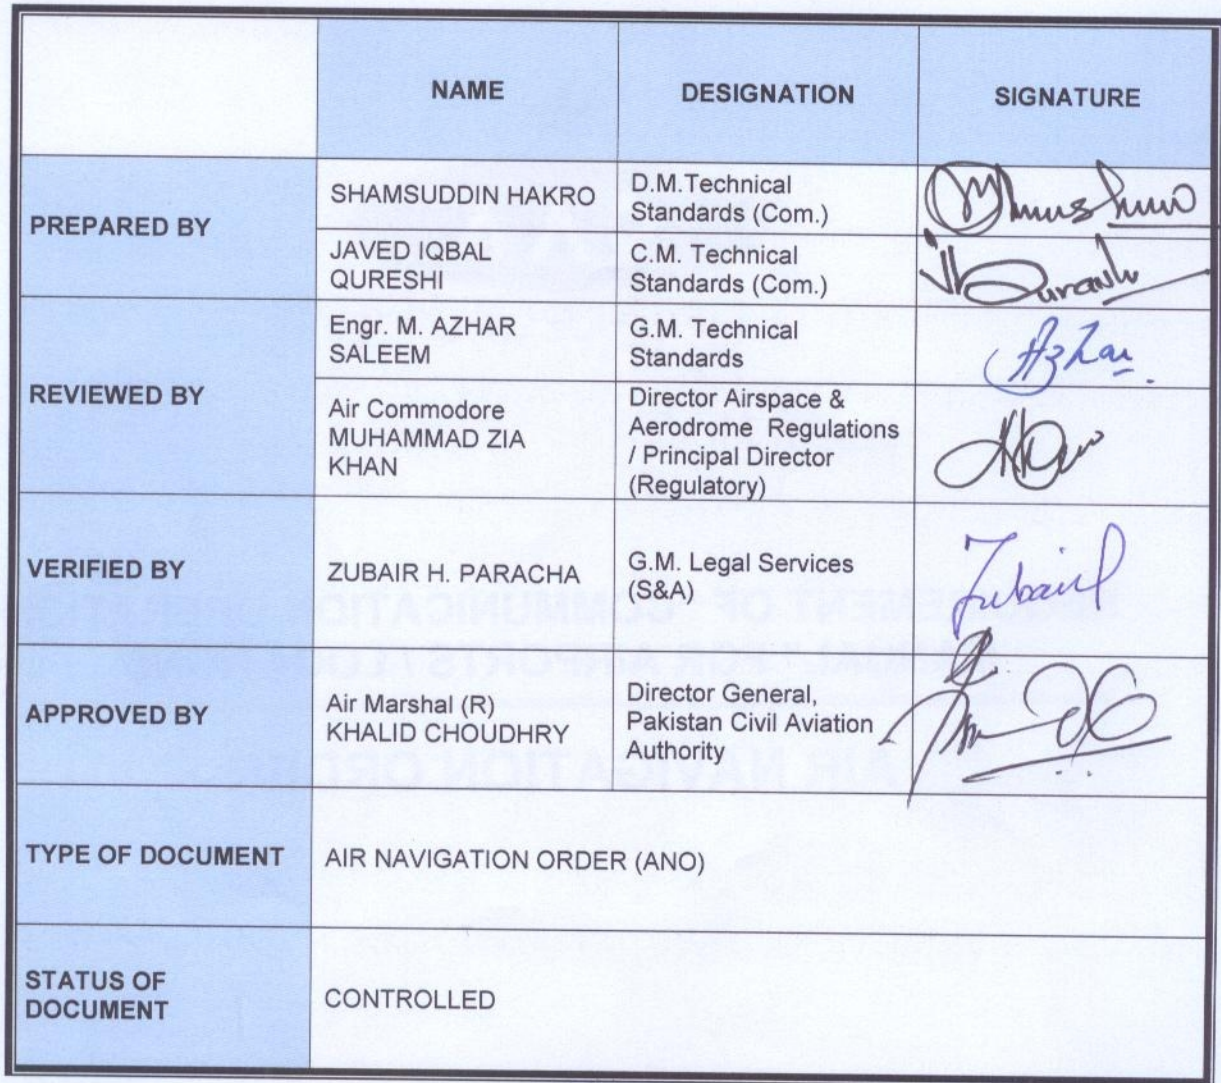 NAME
DESIGNATION
SIGNATURE
PREPARED BY
SHAMSUDDIN HAKRO
D.M.Technical
Standards (Com.)
JAVED IQBAL
QURESHI
C.M. Technical
Standards (Com.)
REVIEWED BY
Engr. M. AZHAR
SALEEM
G.M. Technical
Standards
Azhar
Air Commodore
MUHAMMAD ZIA
KHAN
Director Airspace &
Aerodrome Regulations
/ Principal Director
(Regulatory)
VERIFIED BY
ZUBAIR H. PARACHA
G.M. Legal Services
(S&A)
Zubair
APPROVED BY
Air Marshal (R)
KHALID CHOUDHRY
Director General,
Pakistan Civil Aviation
Authority
TYPE OF DOCUMENT
AIR NAVIGATION ORDER (ANO)
STATUS OF
DOCUMENT
CONTROLLED